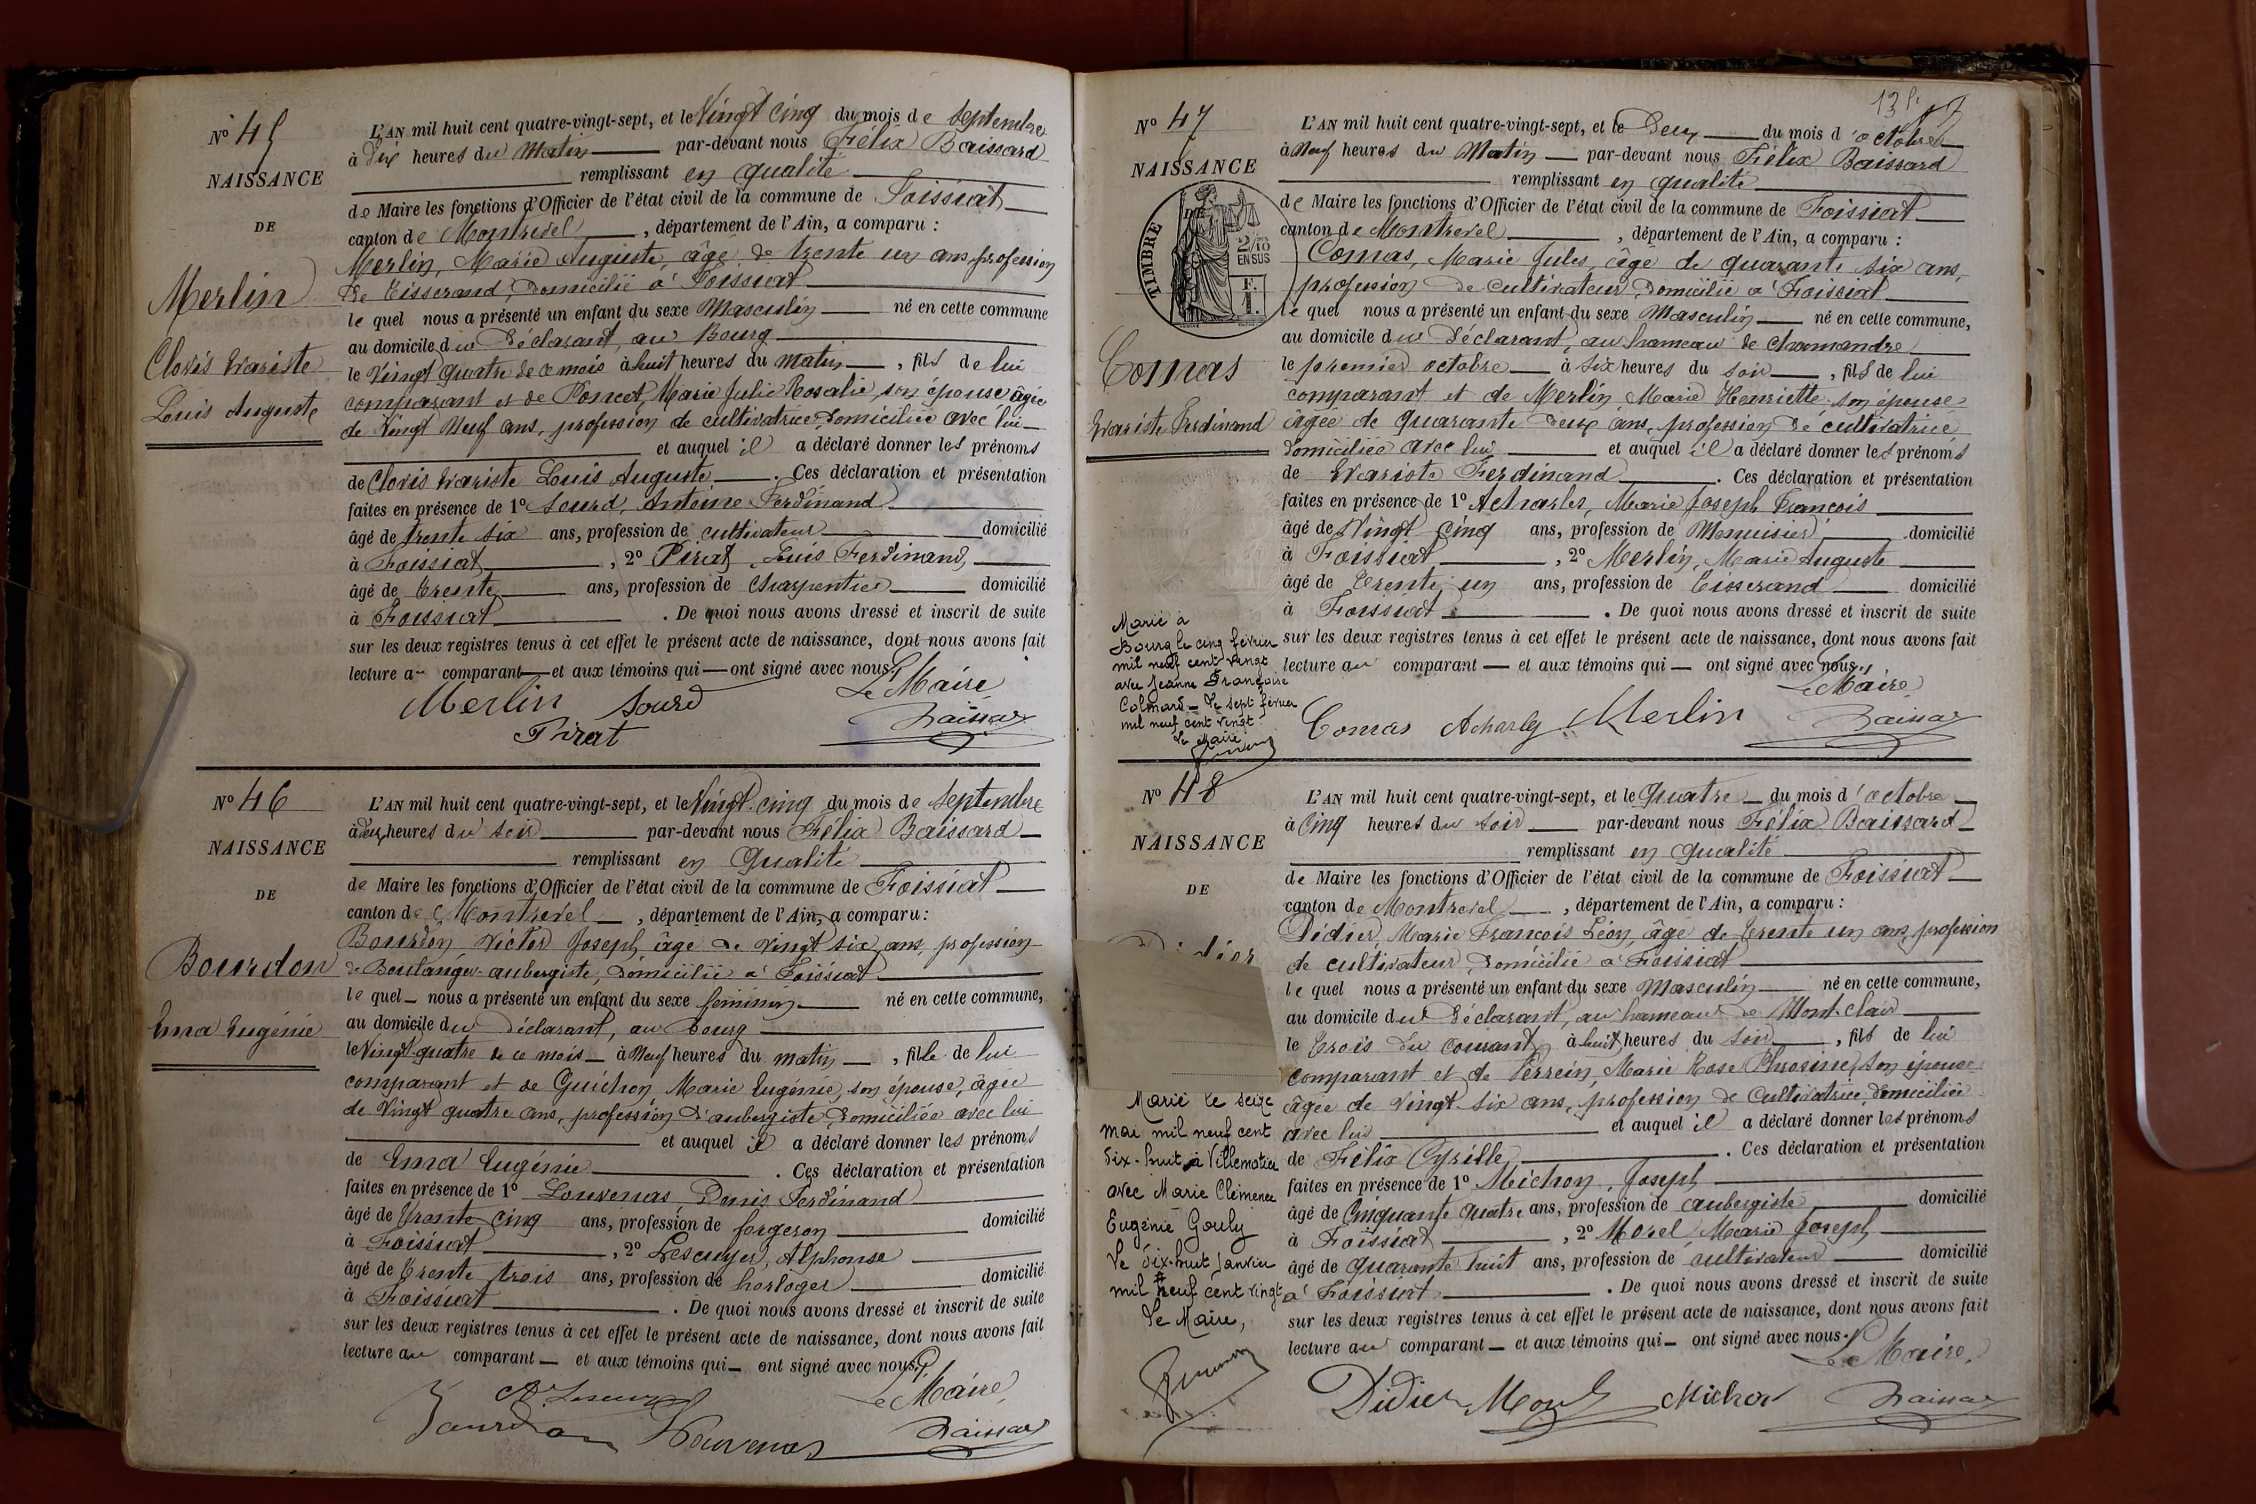 N° 45
NAISSANCE
DE
Merlin
Clovis Evariste
Louis Auguste
L'AN mil huit cent quatre-vingt-sept, et le Vingt Cinq du mois de Septembre
à Dix heures du Matin par-devant nous Félix Baissard
remplissant en qualité
de Maire les fonctions d'Officier de l'état civil de la commune de Foissiat
canton de Montrevel, département de l'Ain, a comparu :
Merlin, Marie Auguste, âgé de trente un ans, profession
de Tisserand, domicilié à Foissiat
le quel nous a présenté un enfant du sexe Masculin né en cette commune
au domicile du déclarant, au Bourg
le Vingt quatre de ce mois à huit heures du matin, fils de lui
comparant et de Poncet, Marie Julie Rosalie, son épouse âgée
de Vingt Neuf ans, profession de cultivatrice, domiciliée avec lui
et auquel il a déclaré donner les prénoms
de Clovis Evariste Louis Auguste. Ces déclaration et présentation
faites en présence de 1° Sourd, Antoine Ferdinand
âgé de trente six ans, profession de cultivateur domicilié
à Foissiat, 2° Pirat, Louis Ferdinand,
âgé de Trente ans, profession de Charpentier domicilié
à Foissiat. De quoi nous avons dressé et inscrit de suite
sur les deux registres tenus à cet effet le présent acte de naissance, dont nous avons fait
lecture au comparant et aux témoins qui ont signé avec nous.
Merlin Sourd Le Maire
Pirat Baissard
N° 46
NAISSANCE
DE
Bourdon
Ema Eugénie
L'AN mil huit cent quatre-vingt-sept, et le Vingt-cinq du mois de Septembre
à deux heures du soir par-devant nous Félix Baissard
remplissant en Qualité
de Maire les fonctions d'Officier de l'état civil de la commune de Foissiat
canton de Montrevel, département de l'Ain, a comparu :
Bourdon, Victor Joseph, âgé de vingt six ans, profession
de Boulanger-aubergiste, domicilié à Foissiat
le quel nous a présenté un enfant du sexe féminin né en cette commune,
au domicile du déclarant, au bourg
le Vingt-quatre de ce mois à Neuf heures du matin, fille de lui
comparant et de Guichon Marie Eugénie, son épouse, âgée
de Vingt quatre ans, profession d'aubergiste, domiciliée avec lui
et auquel il a déclaré donner les prénoms
de Ema Eugénie. Ces déclaration et présentation
faites en présence de 1° Louvenas, Denis Ferdinand
âgé de Trente cinq ans, profession de forgeron domicilié
à Foissiat, 2° Lescuyer, Alphonse
âgé de Trente trois ans, profession de horloger domicilié
à Foissiat. De quoi nous avons dressé et inscrit de suite
sur les deux registres tenus à cet effet le présent acte de naissance, dont nous avons fait
lecture au comparant et aux témoins qui ont signé avec nous.
Le Maire
Bourdon Louvenas Baissard
N° 47
NAISSANCE
DE
TIMBRE
2/10 EN SUS
F. 1.
Comas
Evariste Ferdinand
L'AN mil huit cent quatre-vingt-sept, et le Deux du mois d'octobre
à Neuf heures du Matin par-devant nous Félix Baissard
remplissant en qualité
de Maire les fonctions d'Officier de l'état civil de la commune de Foissiat
canton de Montrevel, département de l'Ain, a comparu :
Comas, Marie Jules, âgé de quarante six ans,
profession de cultivateur, domicilié à Foissiat
le quel nous a présenté un enfant du sexe Masculin né en cette commune,
au domicile du déclarant, au hameau de Chamandre
le premier octobre à six heures du soir, fils de lui
comparant et de Merlin, Marie Henriette son épouse
âgée de quarante deux ans, profession de cultivatrice
domiciliée avec lui et auquel il a déclaré donner les prénoms
de Evariste Ferdinand. Ces déclaration et présentation
faites en présence de 1° Acharles, Marie Joseph François
âgé de Vingt cinq ans, profession de Menuisier domicilié
à Foissiat, 2° Merlin, Marie Auguste
âgé de Trente un ans, profession de Tisserand domicilié
à Foissiat. De quoi nous avons dressé et inscrit de suite
sur les deux registres tenus à cet effet le présent acte de naissance, dont nous avons fait
lecture au comparant et aux témoins qui ont signé avec nous.
Le Maire
Comas Acharles Merlin Baissard
Marié à
Bourg le cinq février
mil neuf cent vingt
avec Jeanne Françoise
Colmard. Le sept février
mil neuf cent vingt
Le Maire
N° 48
NAISSANCE
DE
Didier
L'AN mil huit cent quatre-vingt-sept, et le Quatre du mois d'octobre
à Cinq heures du soir par-devant nous Félix Baissard
remplissant en qualité
de Maire les fonctions d'Officier de l'état civil de la commune de Foissiat
canton de Montrevel, département de l'Ain, a comparu :
Didier, Marie François Léon, âgé de Trente un ans, profession
de cultivateur, domicilié à Foissiat
le quel nous a présenté un enfant du sexe Masculin né en cette commune,
au domicile du déclarant, au hameau de Mont-Clair
le Trois du courant, à huit heures du soir, fils de lui
comparant et de Perrein, Marie Rose Phrosine, son épouse
âgée de vingt-six ans, profession de Cultivatrice, domiciliée
avec lui et auquel il a déclaré donner les prénoms
de Félix Cyrille. Ces déclaration et présentation
faites en présence de 1° Michon, Joseph
âgé de Cinquante quatre ans, profession de aubergiste domicilié
à Foissiat, 2° Morel Marie Joseph
âgé de quarante huit ans, profession de cultivateur domicilié
à Foissiat. De quoi nous avons dressé et inscrit de suite
sur les deux registres tenus à cet effet le présent acte de naissance, dont nous avons fait
lecture au comparant et aux témoins qui ont signé avec nous.
Le Maire,
Didier Morel Michon Baissard
Marié le seize
mai mil neuf cent
dix-huit à Villemotier
avec Marie Clémence
Eugénie Gouly
Le dix-huit Janvier
mil neuf cent vingt
Le Maire,